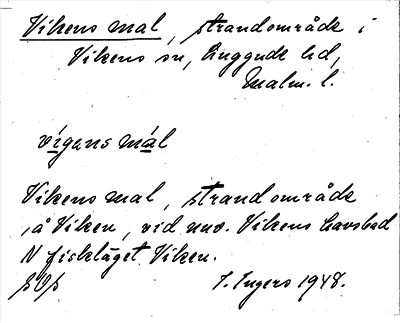 Vikens mal, strandområde i
Vikens sn, Luggude hd,
Malm. l.
vígans mál
Vikens mal, strandområde
å Viken, vid nuv. Vikens havsbad
N fiskläget Viken.
I. Ingers 1948.